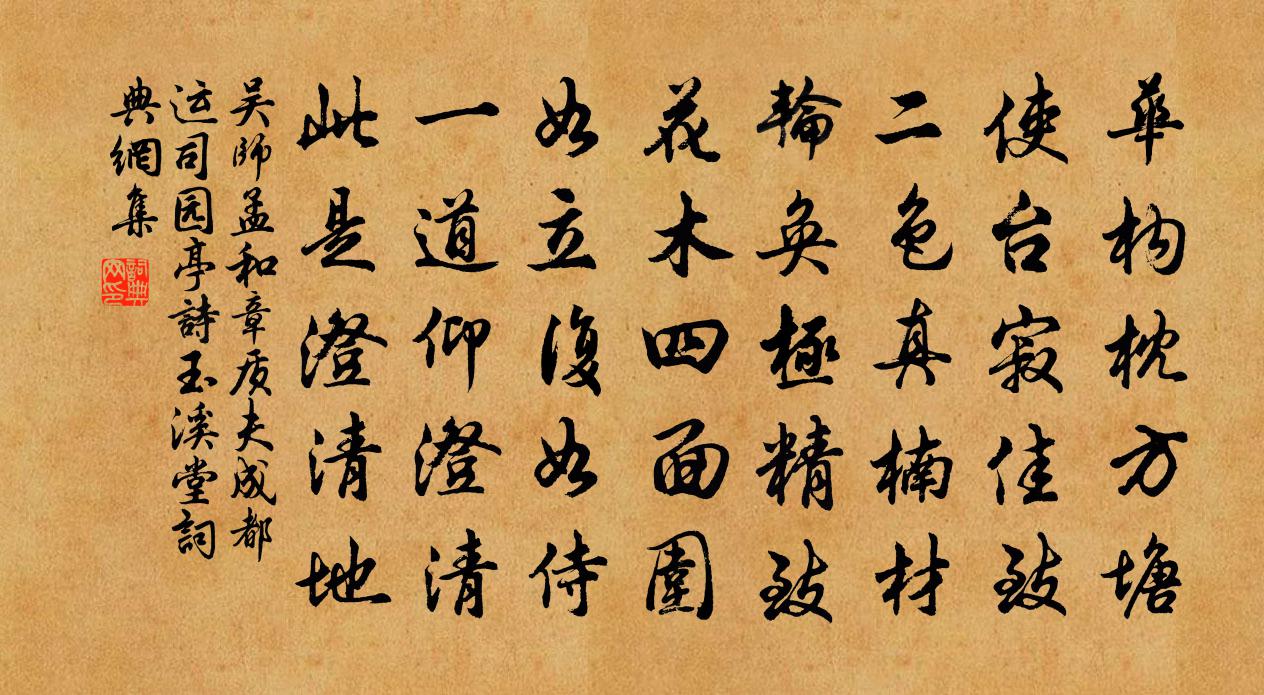 華构枕方塘
使台寂佳致
二色真楠材
輪奐極精致
花木四面圍
如立復如侍
一道仰澄清
此是澄清地
吴師孟和章质夫成都
运司园亭詩玉溪堂詞
典網集
詞典
网印